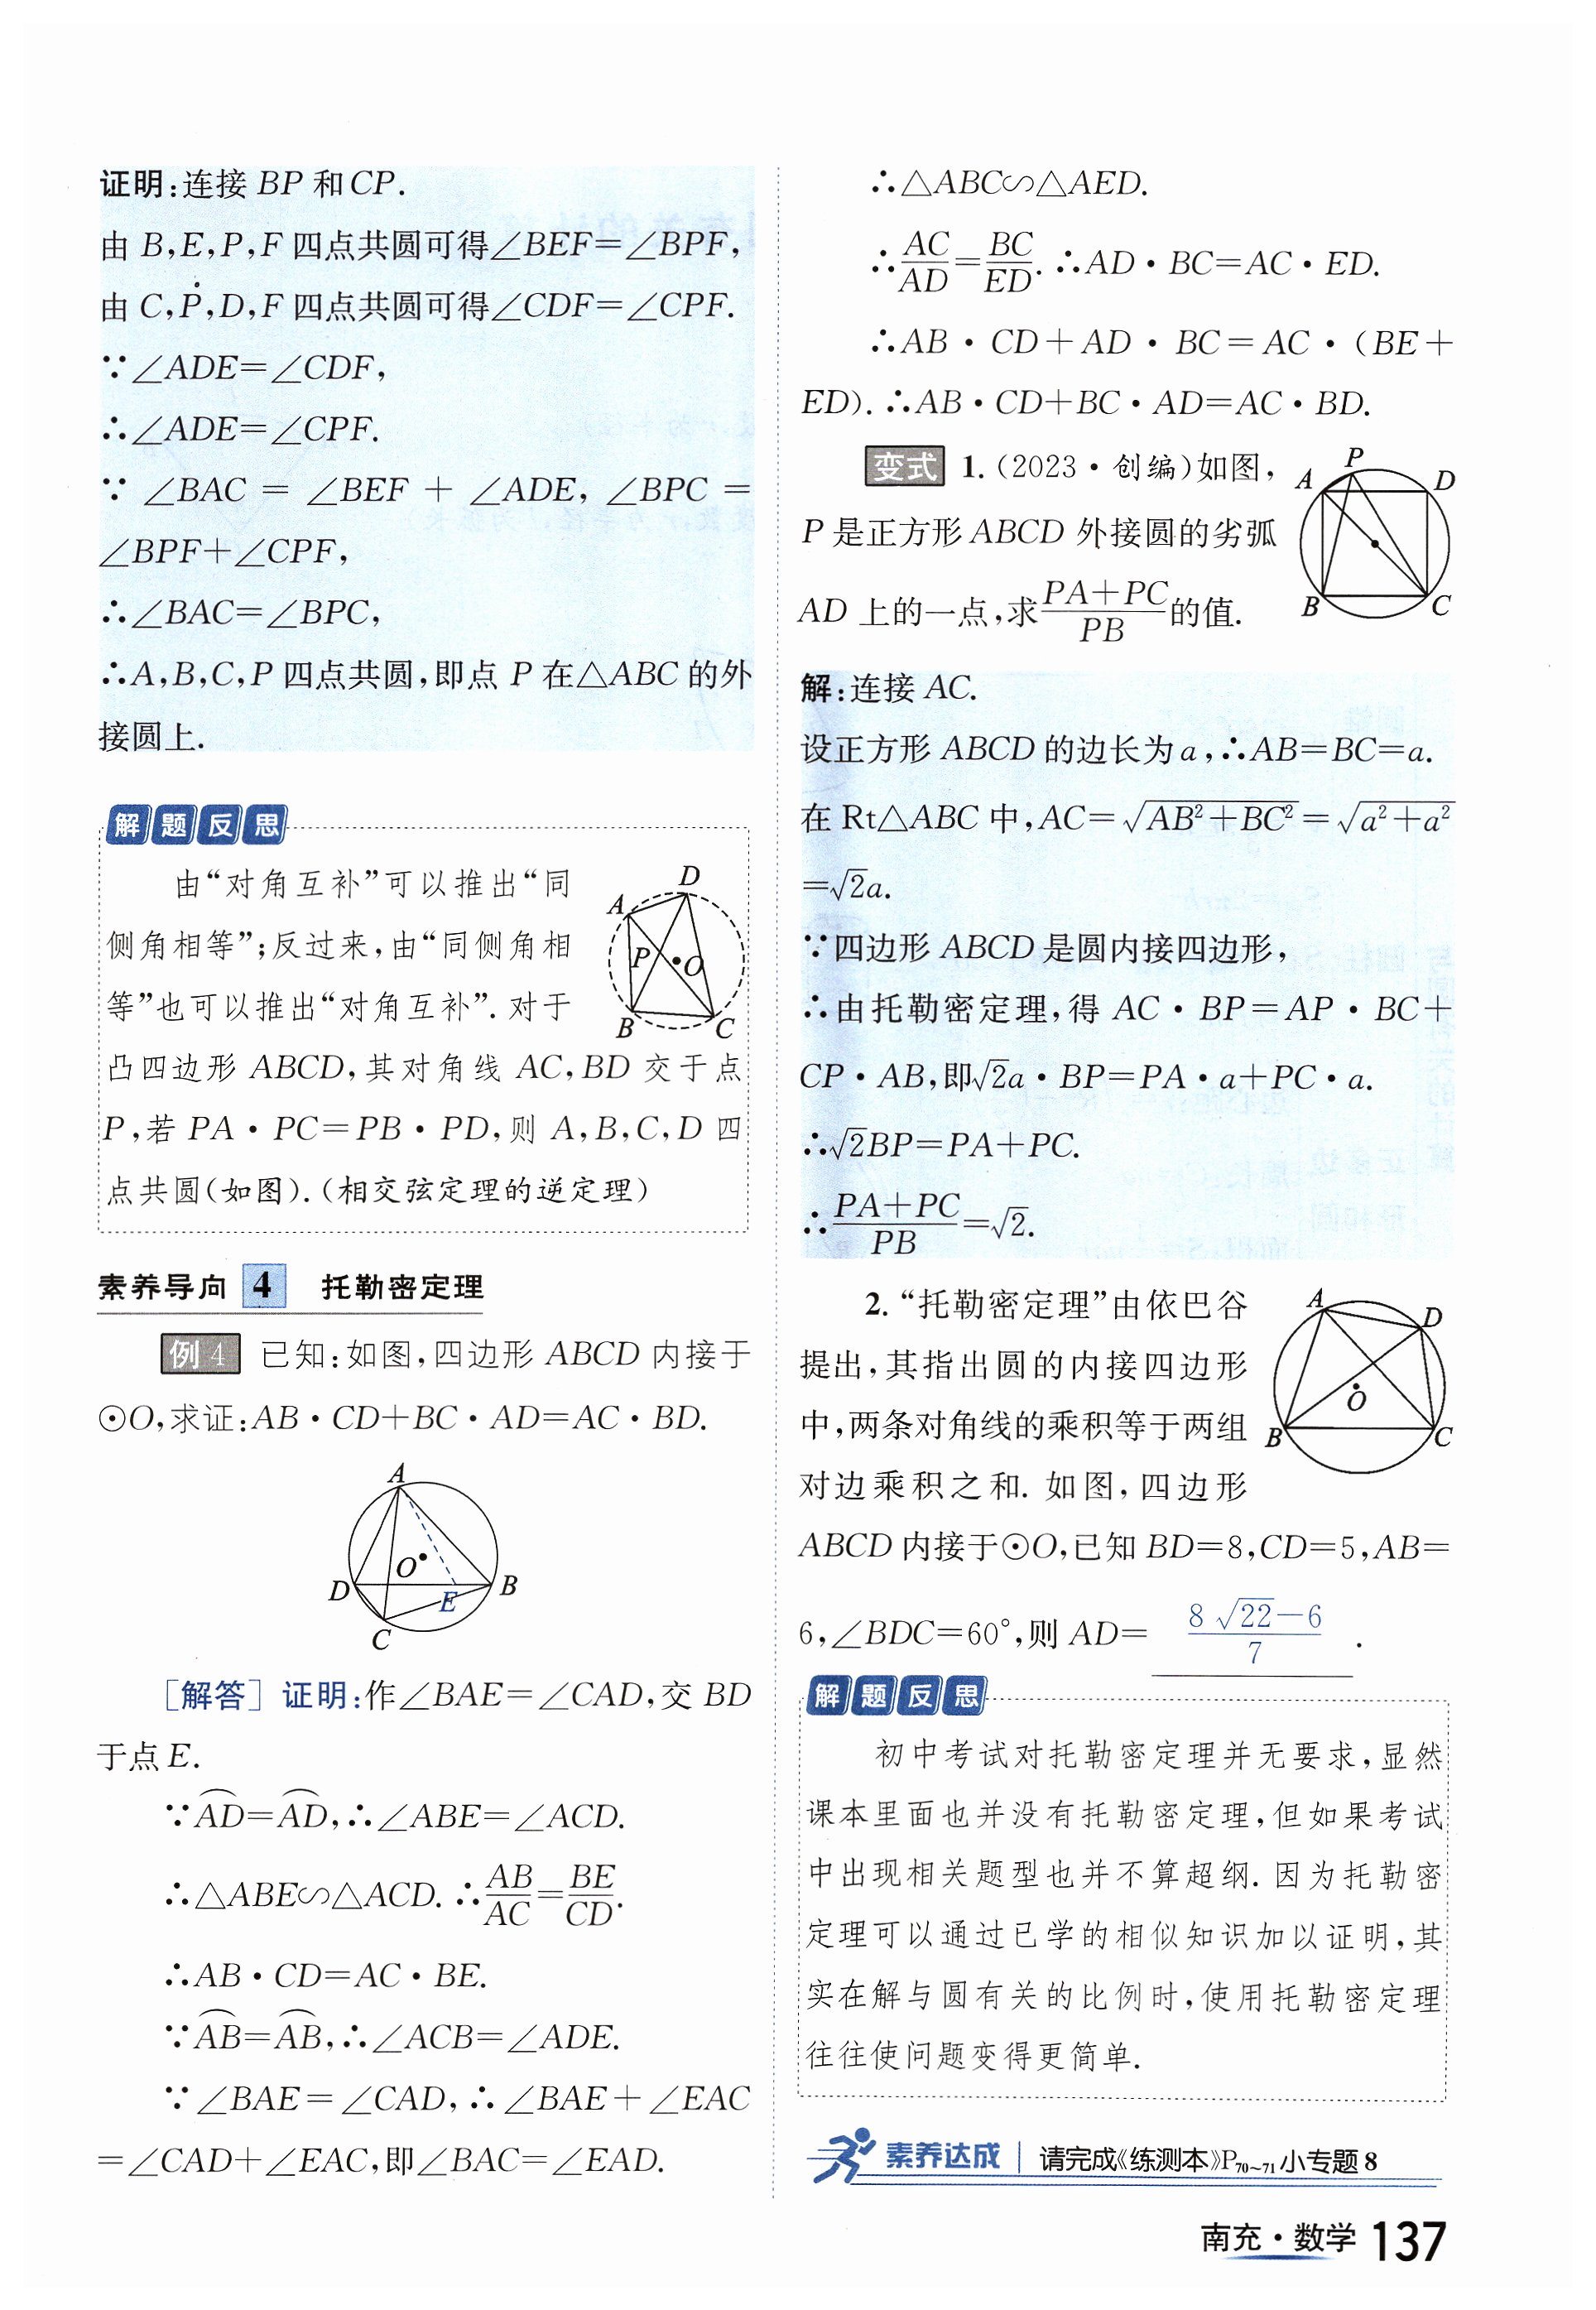 证明:连接 BP 和CP.
由 B,E,P,F 四点共圆可得∠BEF=∠BPF,
由 C,P,D,F 四点共圆可得∠CDF=∠CPF.
∵∠ADE=∠CDF,
∴∠ADE=∠CPF.
∵ ∠BAC = ∠BEF + ∠ADE, ∠BPC =
∠BPF+∠CPF,
∴∠BAC=∠BPC,
∴A,B,C,P 四点共圆,即点 P 在△ABC 的外
接圆上.
解题反思
由“对角互补”可以推出“同
侧角相等”;反过来,由“同侧角相
等”也可以推出“对角互补”. 对于
凸四边形 ABCD,其对角线 AC,BD 交于点
P,若 PA·PC=PB·PD,则 A,B,C,D 四
点共圆(如图).(相交弦定理的逆定理)
A
D
P
O
B
C
素养导向 4 托勒密定理
例 4 已知:如图,四边形 ABCD 内接于
⊙O,求证:AB·CD+BC·AD=AC·BD.
A
O
D
E
B
C
[解答] 证明:作∠BAE=∠CAD,交 BD
于点 E.
∵⌒AD=⌒AD,∴∠ABE=∠ACD.
∴△ABE∽△ACD. ∴AB/AC=BE/CD.
∴AB·CD=AC·BE.
∵⌒AB=⌒AB,∴∠ACB=∠ADE.
∵∠BAE=∠CAD,∴∠BAE+∠EAC
=∠CAD+∠EAC,即∠BAC=∠EAD.
∴△ABC∽△AED.
∴AC/AD=BC/ED. ∴AD·BC=AC·ED.
∴AB·CD+AD·BC=AC·(BE+
ED). ∴AB·CD+BC·AD=AC·BD.
变式 1. (2023·创编)如图,
P 是正方形 ABCD 外接圆的劣弧
AD 上的一点,求(PA+PC)/PB的值.
P
A
D
B
C
解:连接 AC.
设正方形 ABCD 的边长为 a,∴AB=BC=a.
在 Rt△ABC 中,AC=√(AB²+BC²)=√(a²+a²)
=√2a.
∵四边形 ABCD 是圆内接四边形,
∴由托勒密定理,得 AC·BP=AP·BC+
CP·AB,即√2a·BP=PA·a+PC·a.
∴√2BP=PA+PC.
∴(PA+PC)/PB=√2.
2. “托勒密定理”由依巴谷
提出,其指出圆的内接四边形
中,两条对角线的乘积等于两组
对边乘积之和. 如图,四边形
ABCD 内接于⊙O,已知 BD=8,CD=5,AB=
6,∠BDC=60°,则 AD= (8√22-6)/7 .
A
D
O
B
C
解题反思
初中考试对托勒密定理并无要求,显然
课本里面也并没有托勒密定理,但如果考试
中出现相关题型也并不算超纲. 因为托勒密
定理可以通过已学的相似知识加以证明,其
实在解与圆有关的比例时,使用托勒密定理
往往使问题变得更简单.
素养达成 | 请完成《练测本》P₇₀~₇₁小专题 8
南充·数学 137